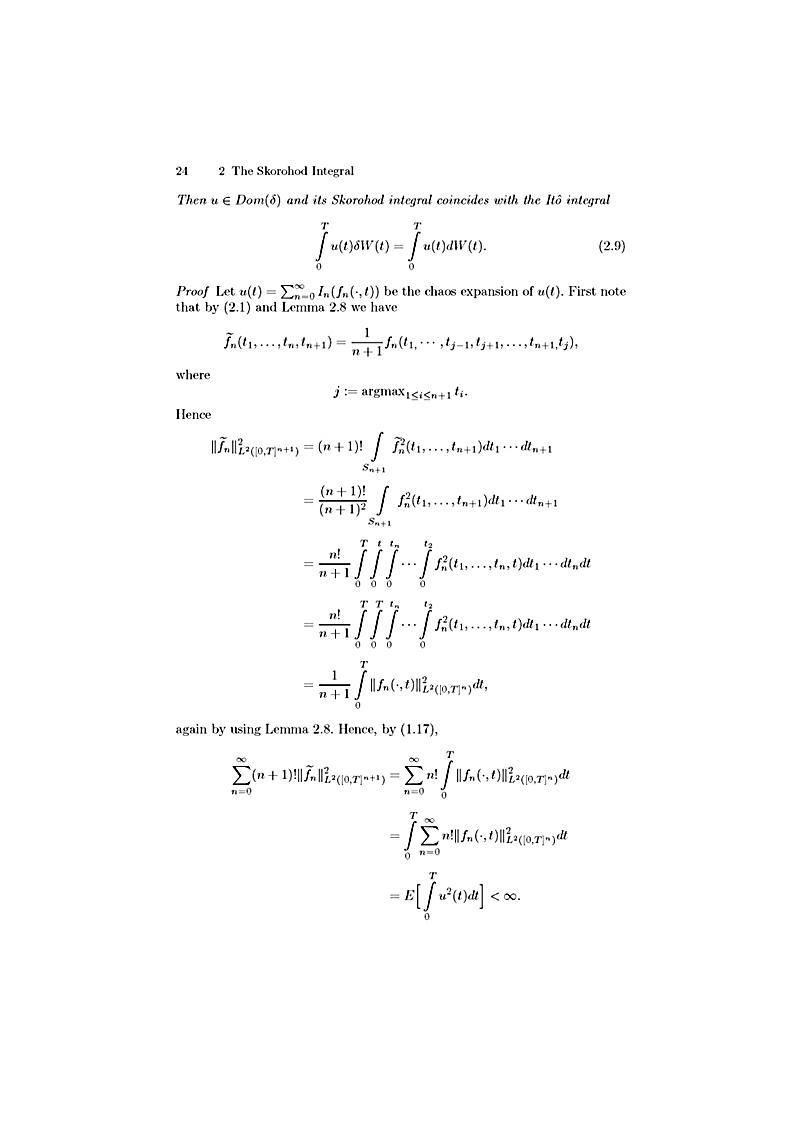 24 2 The Skorohod Integral
Then u ∈ Dom(δ) and its Skorohod integral coincides with the Itô integral
∫_0^T u(t)δW(t) = ∫_0^T u(t)dW(t). (2.9)
Proof Let u(t) = ∑_{n=0}^∞ I_n(f_n(·, t)) be the chaos expansion of u(t). First note
that by (2.1) and Lemma 2.8 we have
f̃_n(t_1, ..., t_n, t_{n+1}) = 1/(n+1) f_n(t_1, ⋯ , t_{j−1}, t_{j+1}, ..., t_{n+1}, t_j),
where
j := argmax_{1≤i≤n+1} t_i.
Hence
‖f̃_n‖²_{L²([0,T]^{n+1})} = (n + 1)! ∫_{S_{n+1}} f̃_n²(t_1, ..., t_{n+1})dt_1 ⋯ dt_{n+1}
= (n+1)!/(n+1)² ∫_{S_{n+1}} f_n²(t_1, ..., t_{n+1})dt_1 ⋯ dt_{n+1}
= n!/(n+1) ∫_0^T ∫_0^t ∫_0^{t_n} ⋯ ∫_0^{t_2} f_n²(t_1, ..., t_n, t)dt_1 ⋯ dt_n dt
= n!/(n+1) ∫_0^T ∫_0^T ∫_0^{t_n} ⋯ ∫_0^{t_2} f_n²(t_1, ..., t_n, t)dt_1 ⋯ dt_n dt
= 1/(n+1) ∫_0^T ‖f_n(·, t)‖²_{L²([0,T]^n)} dt,
again by using Lemma 2.8. Hence, by (1.17),
∑_{n=0}^∞ (n + 1)!‖f̃_n‖²_{L²([0,T]^{n+1})} = ∑_{n=0}^∞ n! ∫_0^T ‖f_n(·, t)‖²_{L²([0,T]^n)} dt
= ∫_0^T ∑_{n=0}^∞ n!‖f_n(·, t)‖²_{L²([0,T]^n)} dt
= E[∫_0^T u²(t)dt] < ∞.